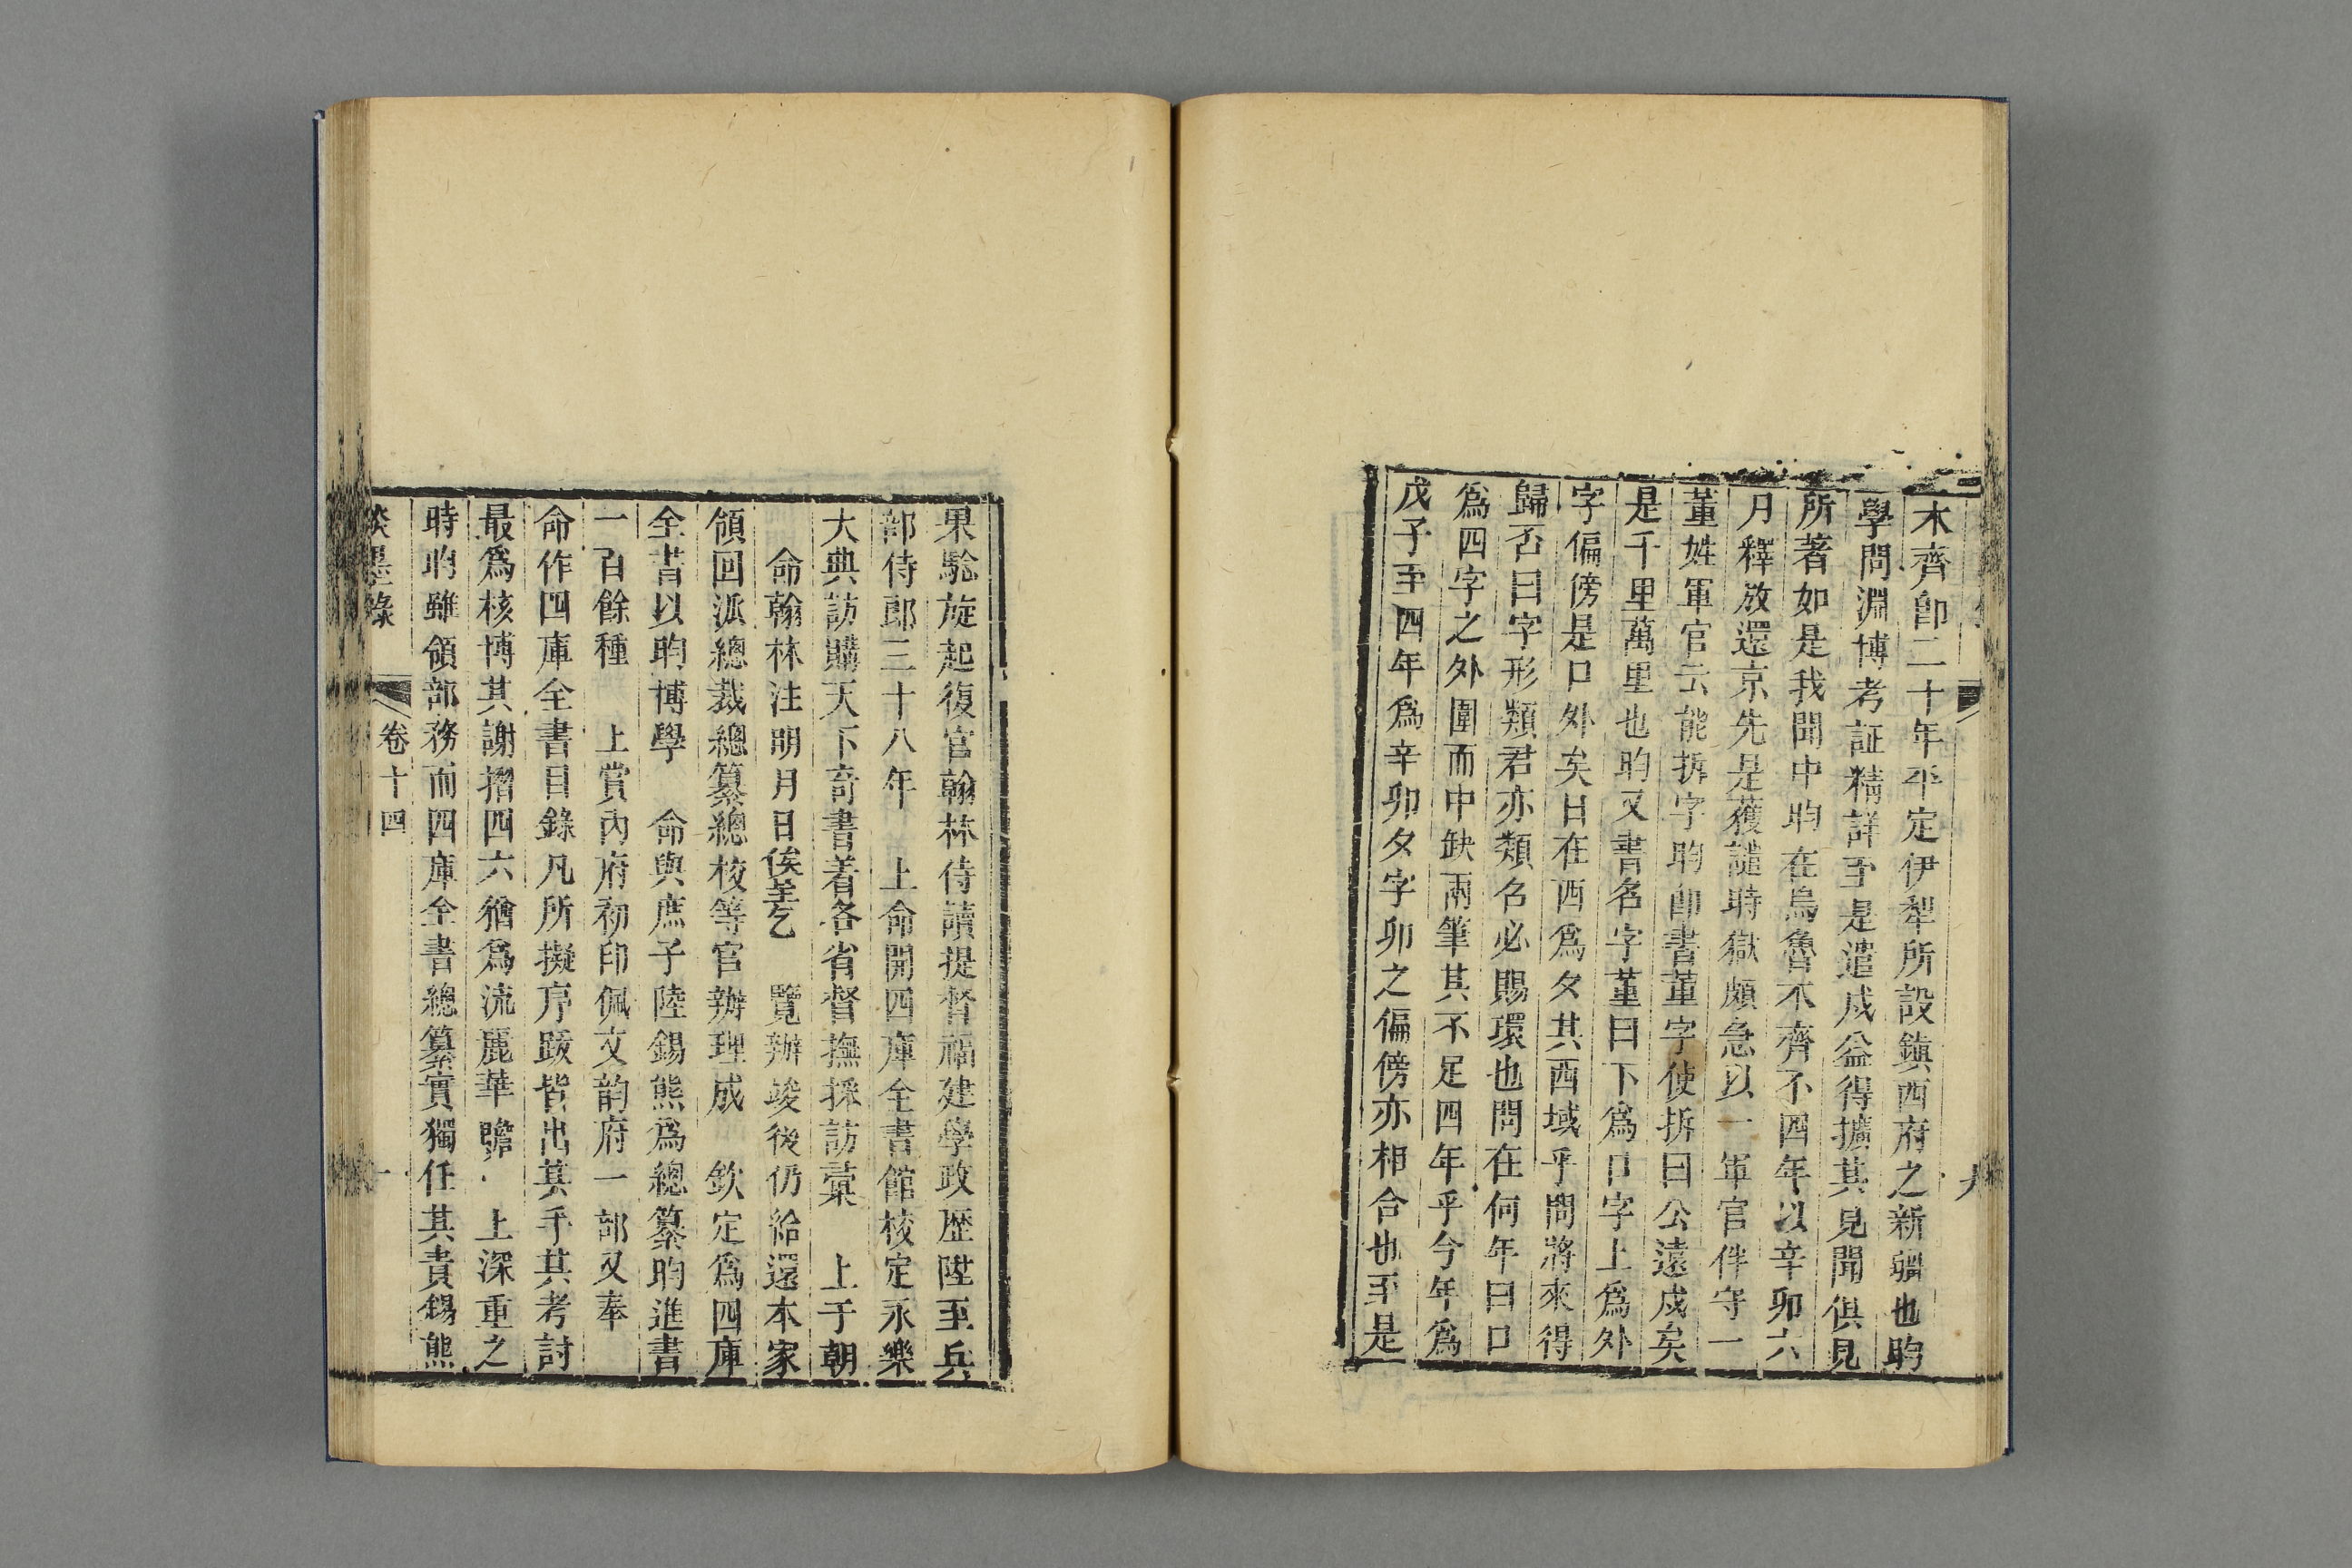 木齊卽二十年平定伊犁所設鎮西府之新疆也昀
學問淵博考証精詳至是遣戍益得擴其見聞俱見
所著如是我聞中昀在烏魯木齊不四年以辛卯六
月釋放還京先是獲譴時獄頗急以一軍官伴守一
董姓軍官云能拆字昀卽書董字使拆曰公遠戍矣
是千里萬里也昀又書名字董曰下爲口字上爲外
字偏傍是口外矣日在西爲夕其西域乎問將來得
歸否曰字形類君亦類名必賜環也問在何年曰口
爲四字之外圍而中缺兩筆其不足四年乎今年爲
戊子至四年爲辛卯夕字卯之偏傍亦相合也至是
果騐旋起復官翰林侍讀提督福建學政歷陞至兵
部侍郎三十八年　上命開四庫全書館校定永樂
大典訪購天下奇書着各省督撫採訪彙　上于朝
命翰林注明月日俟呈乞　覽辦竣後仍給還本家
領回派總裁總纂總校等官辦理成　欽定爲四庫
全書以昀博學　命與庶子陸錫熊爲總纂昀進書
一百餘種　上賞內府初印佩文韵府一部又奉
命作四庫全書目錄凡所擬序跋皆出其手其考討
最爲核博其謝摺四六猶爲流麗華贍　上深重之
時昀雖領部務而四庫全書總纂實獨任其責錫熊
淡墨錄　卷十四